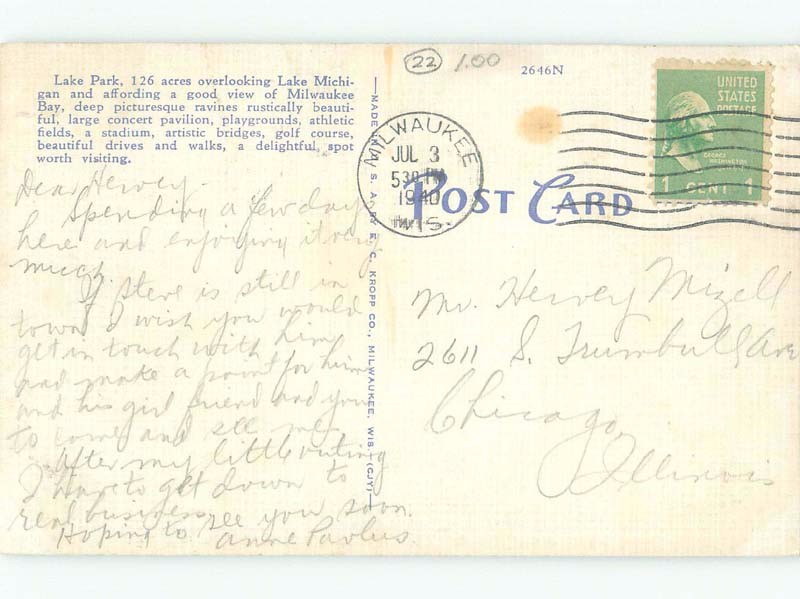 22 1.00
2646N
Lake Park, 126 acres overlooking Lake Michi-
gan and affording a good view of Milwaukee
Bay, deep picturesque ravines rustically beauti-
ful, large concert pavilion, playgrounds, athletic
fields, a stadium, artistic bridges, golf course,
beautiful drives and walks, a delightful spot
worth visiting.
MILWAUKEE
JUL 3
530 PM
1940
WIS.
UNITED
STATES
POSTAGE
GEORGE WASHINGTON
1 CENT 1
POST CARD
MADE IN U. S. A. BY E. C. KROPP CO., MILWAUKEE, WIS. (CJY)
Dear Hervey-
Spending a few days
here and enjoying it very
much.
If Steve is still in
town I wish you would
get in touch with him
and make a point for him
and his girl friend and you
to come and see me.
After my little outing
I have to get down to
real business.
Hoping to see you soon.
Anne Pavlus.
Mr. Hervey Mizell
2611 S. Trumbull Ave
Chicago,
Illinois